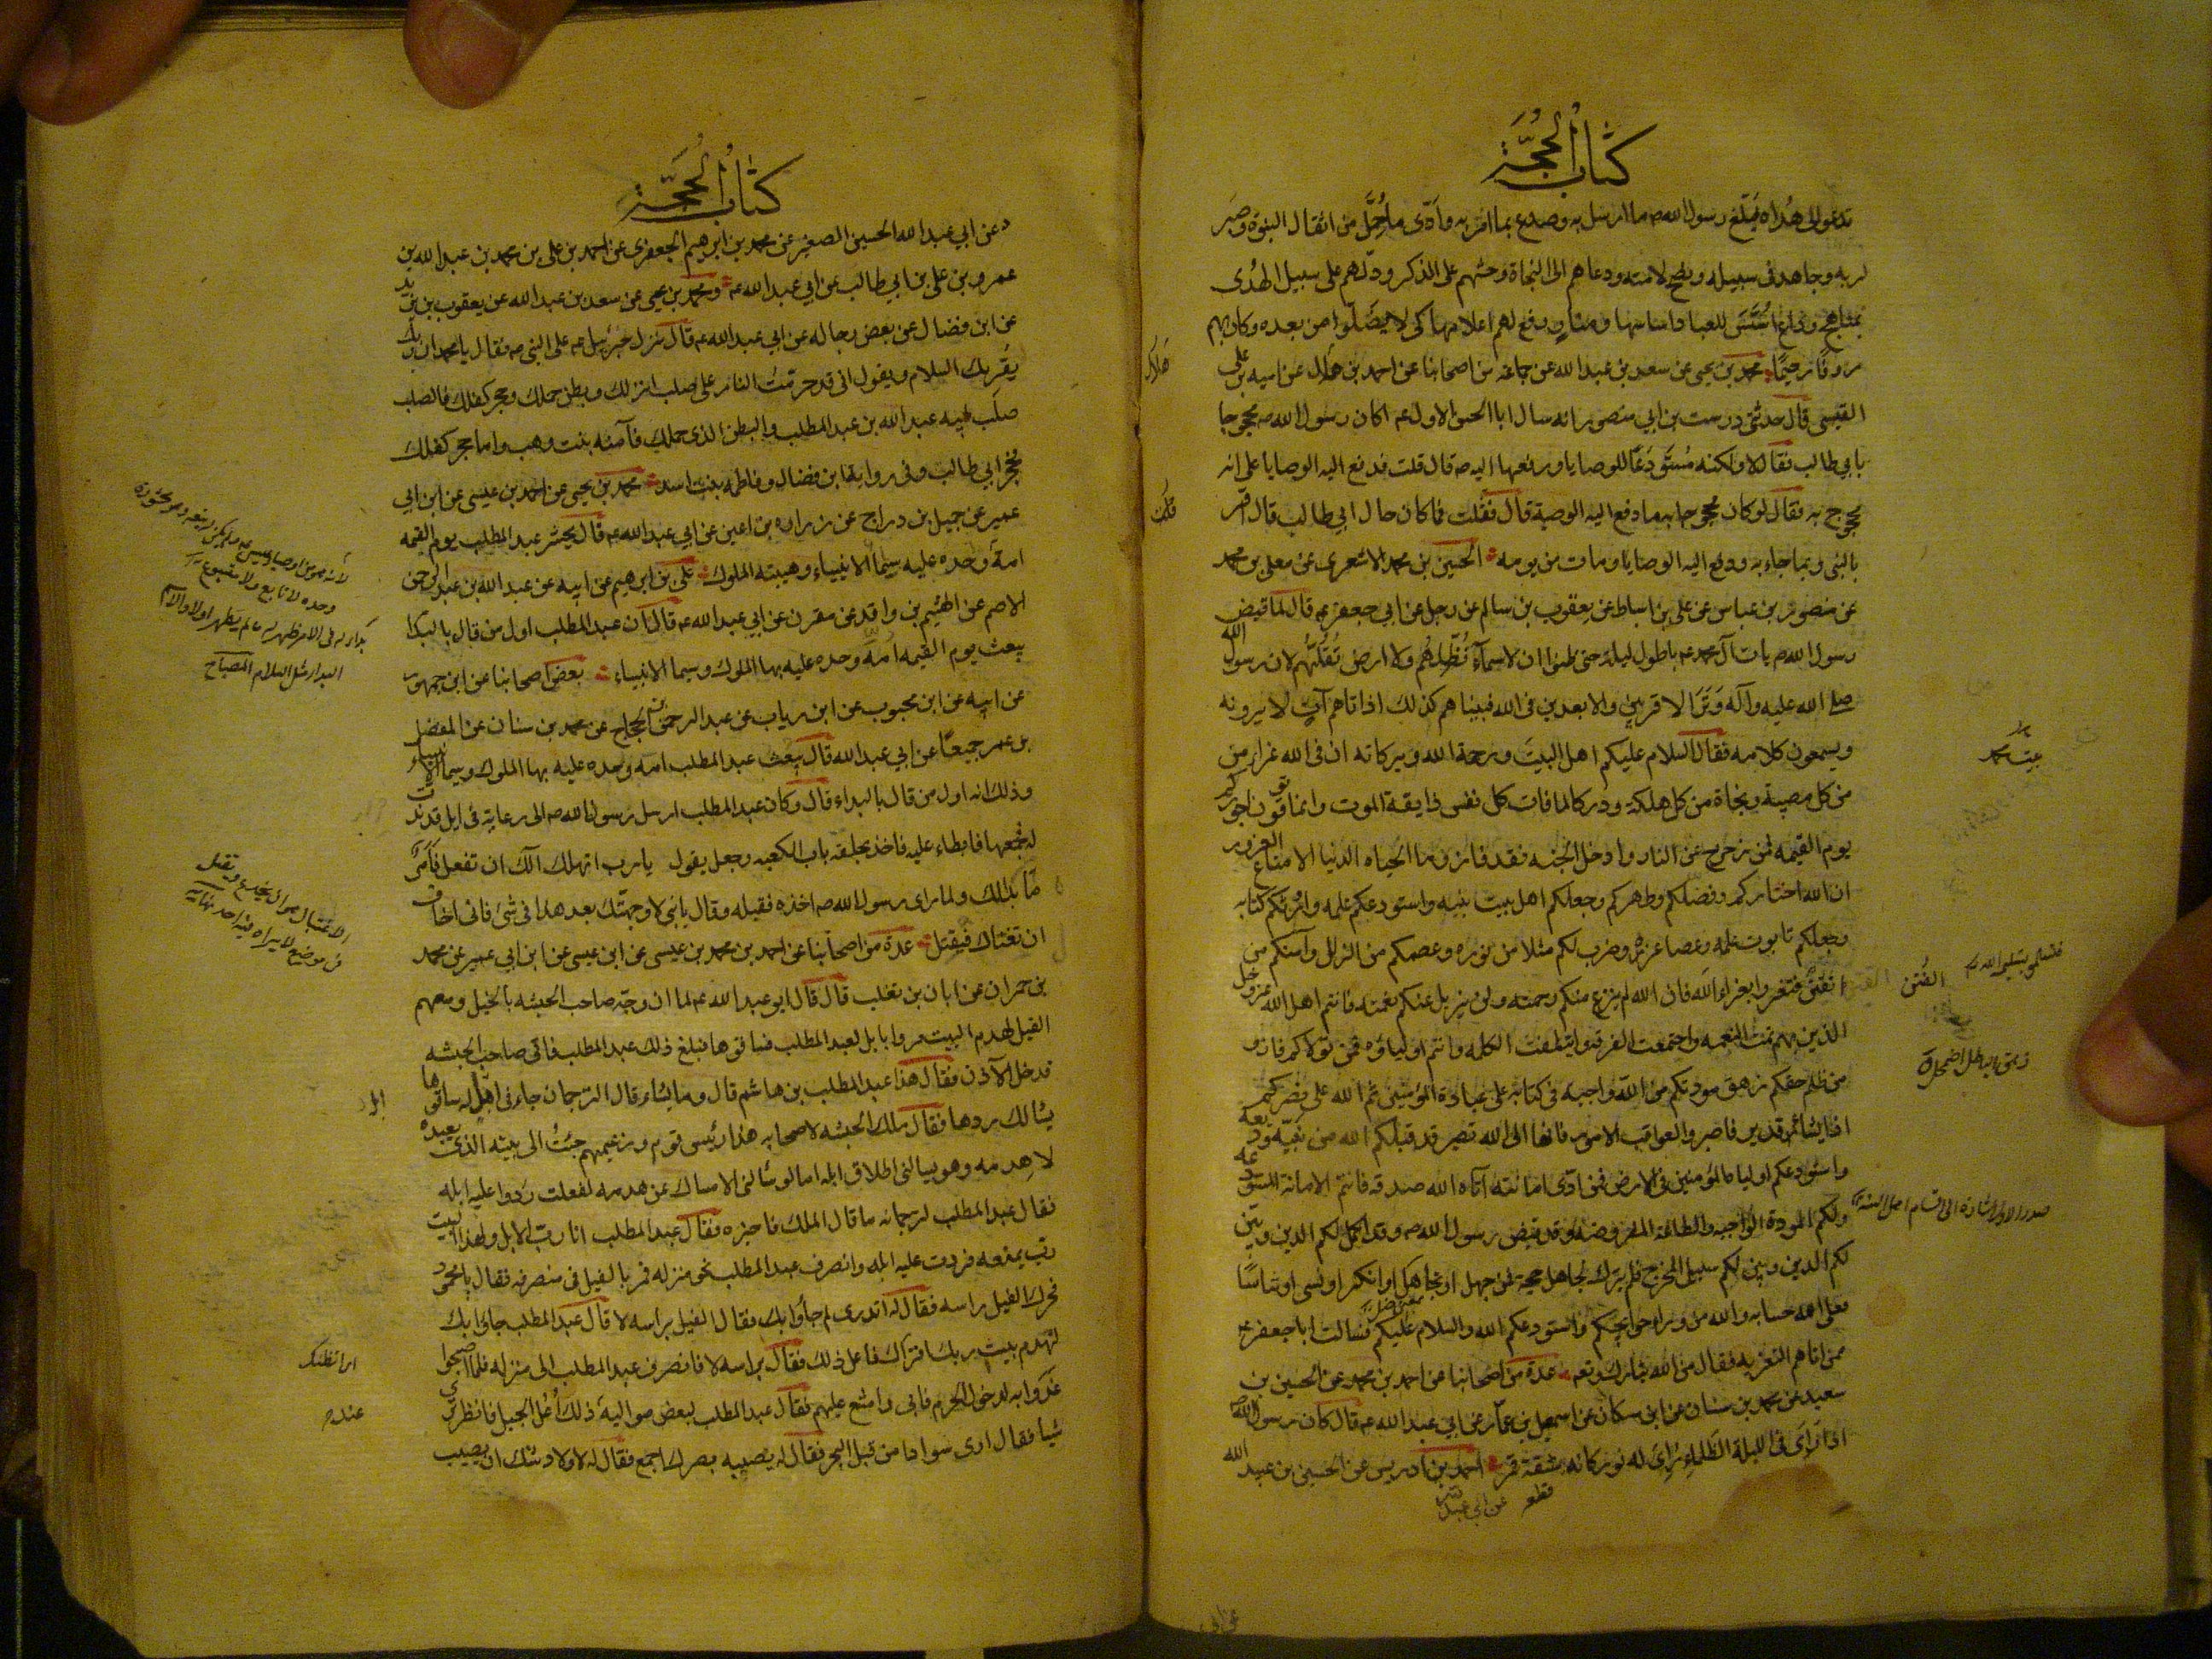 كتاب الحجة
تدعو الى هداه فبلغ رسول الله ص ما ارسل به وصدع بما امر به وادّى ما حُمّل من اثقال النبوة وصبر
لربه وجاهد فى سبيله ونصح لامته ودعاهم الى النجاة وحثهم على الذكر ودلّهم على سبيل الهُدى
بمناهج ودواع اسّس للعباد اساسها ومنار رفع لهم اعلامها كى لا يضلّوا من بعده وكان بهم
رروفًا رحيمًا محمد بن يحيى عن سعد بن عبد الله عن جماعة من اصحابنا عن احمد بن هلال عن امية بن على
القيسى قال حدثنى درست بن ابي منصور انه سال ابا الحسن الاول ع اكان رسول الله ص محجوجا
بابي طالب فقال لا ولكنه مُستَودَعًا للوصايا ودفعها اليه ص قال قلت فدفع اليه الوصايا على انه
محجوج به فقال لو كان محجوجا به ما دفع اليه الوصية قال فقلت فما كان حال ابي طالب قال اقر
بالنبى وبما جاء به ودفع اليه الوصايا ومات من يومه الحسين بن محمد الاشعرى عن معلى بن محمد
عن منصور بن عباس عن على بن اسباط عن يعقوب بن سالم عن رجل عن ابي جعفر ع قال لما قبض
رسول الله ص بات آل محمد ع باطول ليلة حتى ظنوا ان لا سمآء تُظِلهُم ولا ارض تُقُلّهُم لان رسول الله
صلى الله عليه وآله وَتَرَ الاقربين والابعدين فى الله فبينا هم كذلك اذ اتاهم آتٍ لا يرونه
ويسمعون كلامه فقال السلام عليكم اهل البيت ورحمة الله وبركاته ان فى الله عزاء من
من كل مصيبة ونجاة من كل هلكة ودركا لما فات كل نفس ذايقة الموت وانما توفون اجوركم
يوم القيمه فمن زحزح عن النار وادخل الجنه فقد فاز وما الحياه الدنيا الا متاع الغرور
ان الله اختاركم وفضلكم وطهركم وجعلكم اهل بيت نبيه واستودعكم علمه واورثكم كتابه
وجعلكم تابوت علمه وعصا عزه وضرب لكم مثلا من نوره وعصمكم من الزلل وآمنكم من
الفتن فتعزوا بعزاء الله فان الله لم ينزع منكم رحمته ولن يزيل عنكم نعمته فانتم اهل الله عز وجل
الذين بهم تمت النعمه واجتمعت الفرقه وايتلفت الكلمه وانتم اولياؤه فمن تولاكم فاز و
من ظلم حقكم زهق مودتكم من الله واجبه فى كتابه على عباده المؤمنين ثم الله على نصركم
اذا يشاء قدير فاصبروا لعواقب الامور فانها الى الله تصير قد قبلكم الله من نبيّه وديعه
واستودعكم اولياءه المؤمنين فى الارض فمن ادّى امانته آتاه الله صدقه فانتم الامانة المستودعه
ولكم المودة الواجبه والطاعة المفروضه وقد قبض رسول الله ص وقد اكمل لكم الدين وبيّن
لكم الدين وبين لكم سبيل المخرج فلم يترك لجاهل حجة فمن جهل او تجاهل او انكر او نسى او تناسا
فعلى الله حسابه والله من وراء حوايجكم واستودعكم الله والسلام عليكم فسالت ابا جعفر ع
ممن اتاهم التعزيه فقال من الله تبارك وتع عدة من اصحابنا عن احمد بن محمد عن الحسين بن
سعيد عن محمد بن سنان عن ابن مسكان عن اسمعيل بن عمّار عن ابي عبد الله ع قال كان رسول الله ص
اذا رُاى فى الليلة الظلماء رُاى له نور كانه شقة قمر احمد بن ادريس عن الحسين بن عبيد الله
هلال
قلت
الفتن
كتاب الحجة
عن ابي عبد الله الحسين الصغير عن محمد بن ابرهيم الجعفرى عن احمد بن على بن محمد بن عبد الله بن
عمرو بن على بن ابي طالب عن ابي عبد الله ع ومحمد بن يحيى عن سعد بن عبد الله عن يعقوب بن يزيد
عن ابن فضال عن بعض رجاله عن ابي عبد الله ع قال نزل جبرئيل ع على النبى ص فقال يا محمد ان ربك
يقرئك السلام ويقول انى قد حرمت النار على صلب انزلك وبطن حملك وحجر كفلك فالصلب
صلب ابيه عبد الله بن عبد المطلب والبطن الذى حملك فآمنه بنت وهب واما حجر كفلك
فحجر ابي طالب وفى رواية ابن فضال وفاطمه بنت اسد محمد بن يحيى عن احمد بن عيسى عن ابن ابي
عمير عن جميل بن دراج عن زراره بن اعين عن ابي عبد الله ع قال يحشر عبد المطلب يوم القيمه
امة وحده عليه سيمآ الانبياء وهيبته الملوك على بن ابرهيم عن ابيه عن عبد الله بن عبد الرحمن
الاصم عن الهيثم بن واقد عن مقرن عن ابي عبد الله ع قال ان عبد المطلب اول من قال بالبداء
يبعث يوم القيمه امة وحده عليه بهاء الملوك وسيماء الانبياء بعض اصحابنا عن ابن جمهور
عن ابيه عن ابن محبوب عن ابن رياب عن عبد الرحمن بن الحجاج عن محمد بن سنان عن المفضل
بن عمر جميعًا عن ابي عبد الله قال يبعث عبد المطلب امه وحده عليه بهاء الملوك وسيماء الانبياء
وذلك انه اول من قال بالبداء قال وكان عبد المطلب ارسل رسول الله ص الى رعاية فى ابل قد ندّت
له يجمعها فابطاء عليه فاخذ بحلقه باب الكعبه وجعل يقول يا رب اتهلك آلك ان تفعل فامر
مّا بدا لك ولما راى رسول الله ص اخذه فقبله وقال يا بنى لا وجهتّك بعد هذا فى شئ فانى اخاف
ان تغتال فتقتل عدة من اصحابنا عن احمد بن محمد بن عيسى عن ابن عيسى عن ابن ابي عمير عن محمد
بن حمران عن ابان بن تغلب قال قال ابو عبد الله ع لما ان وجّه صاحب الحبشه بالخيل ومعهم
الفيل لهدم البيت مروا بابل لعبد المطلب فساقوها فبلغ ذلك عبد المطلب فاتى صاحب الحبشه
فدخل الآذن فقال هذا عبد المطلب بن هاشم قال وما يشاء قال الترجمان جاء فى ابل له ساقوها
يسالك ردها فقال ملك الحبشه لاصحابه هذا رئيس قوم وزعيمهم جئت الى بيته الذى يعبده
لاهدمه وهو يسالنى اطلاق ابله اما لو سالنى الامساك عن هدمه لفعلت ردوا عليه ابله
فقال عبد المطلب لترجمانه ما قال الملك فاخبره فقال عبد المطلب انا رب الابل ولهذا البيت
رب يمنعه فردت عليه ابله وانصرف عبد المطلب نحو منزله فمر بالفيل فى منصرفه فقال يا محمود
فحرك الفيل راسه فقال له اتدرى لم جاؤا بك فقال الفيل براسه لا فقال عبد المطلب جاؤا بك
لتهدم بيت ربك افتراك فاعل ذلك فقال براسه لا فانصرف عبد المطلب الى منزله فلما اصبحوا
غدوا به لدخول الحرم فابى وامتنع عليهم فقال عبد المطلب لبعض مواليه عند ذلك اعل الجبل فانظر ترى
شيا فقال ارى سوادا من قبل البحر فقال له يصيبه بصرك اجمع فقال له لا ولاوشك ان يصيب